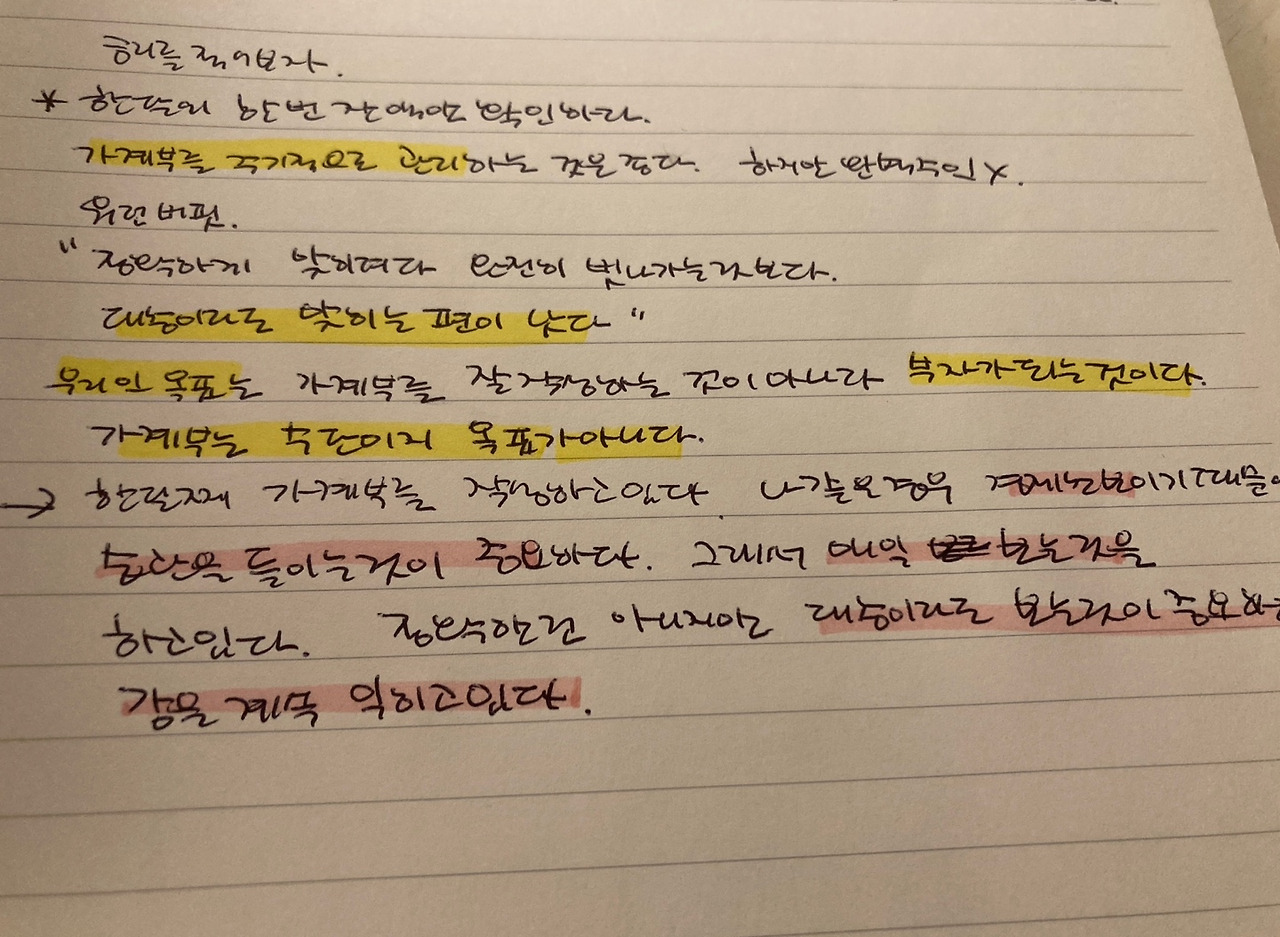 적어보자.
* 한달에 한번 잔액만 확인하라.
가계부를 주기적으로 관리하는 것은 좋다. 하지만 완벽주의 X.
워런버핏.
" 정확하게 맞히려다 완전히 빗나가는것보다.
대충이라도 맞히는 편이 낫다 "
우리의 목표는 가계부를 잘작성하는 것이 아니라 부자가 되는 것이다.
가계부는 수단이지 목표가아니다.
→ 한달째 가계부를 작성하고있다 나같은경우 경제 이기때문에
습관을 들이는것이 중요하다. 그래서 매일 보는것을
하고있다. 정확하진 아니지만 대충이라도 보는것이 중요하
감을 계속 익히고있다.